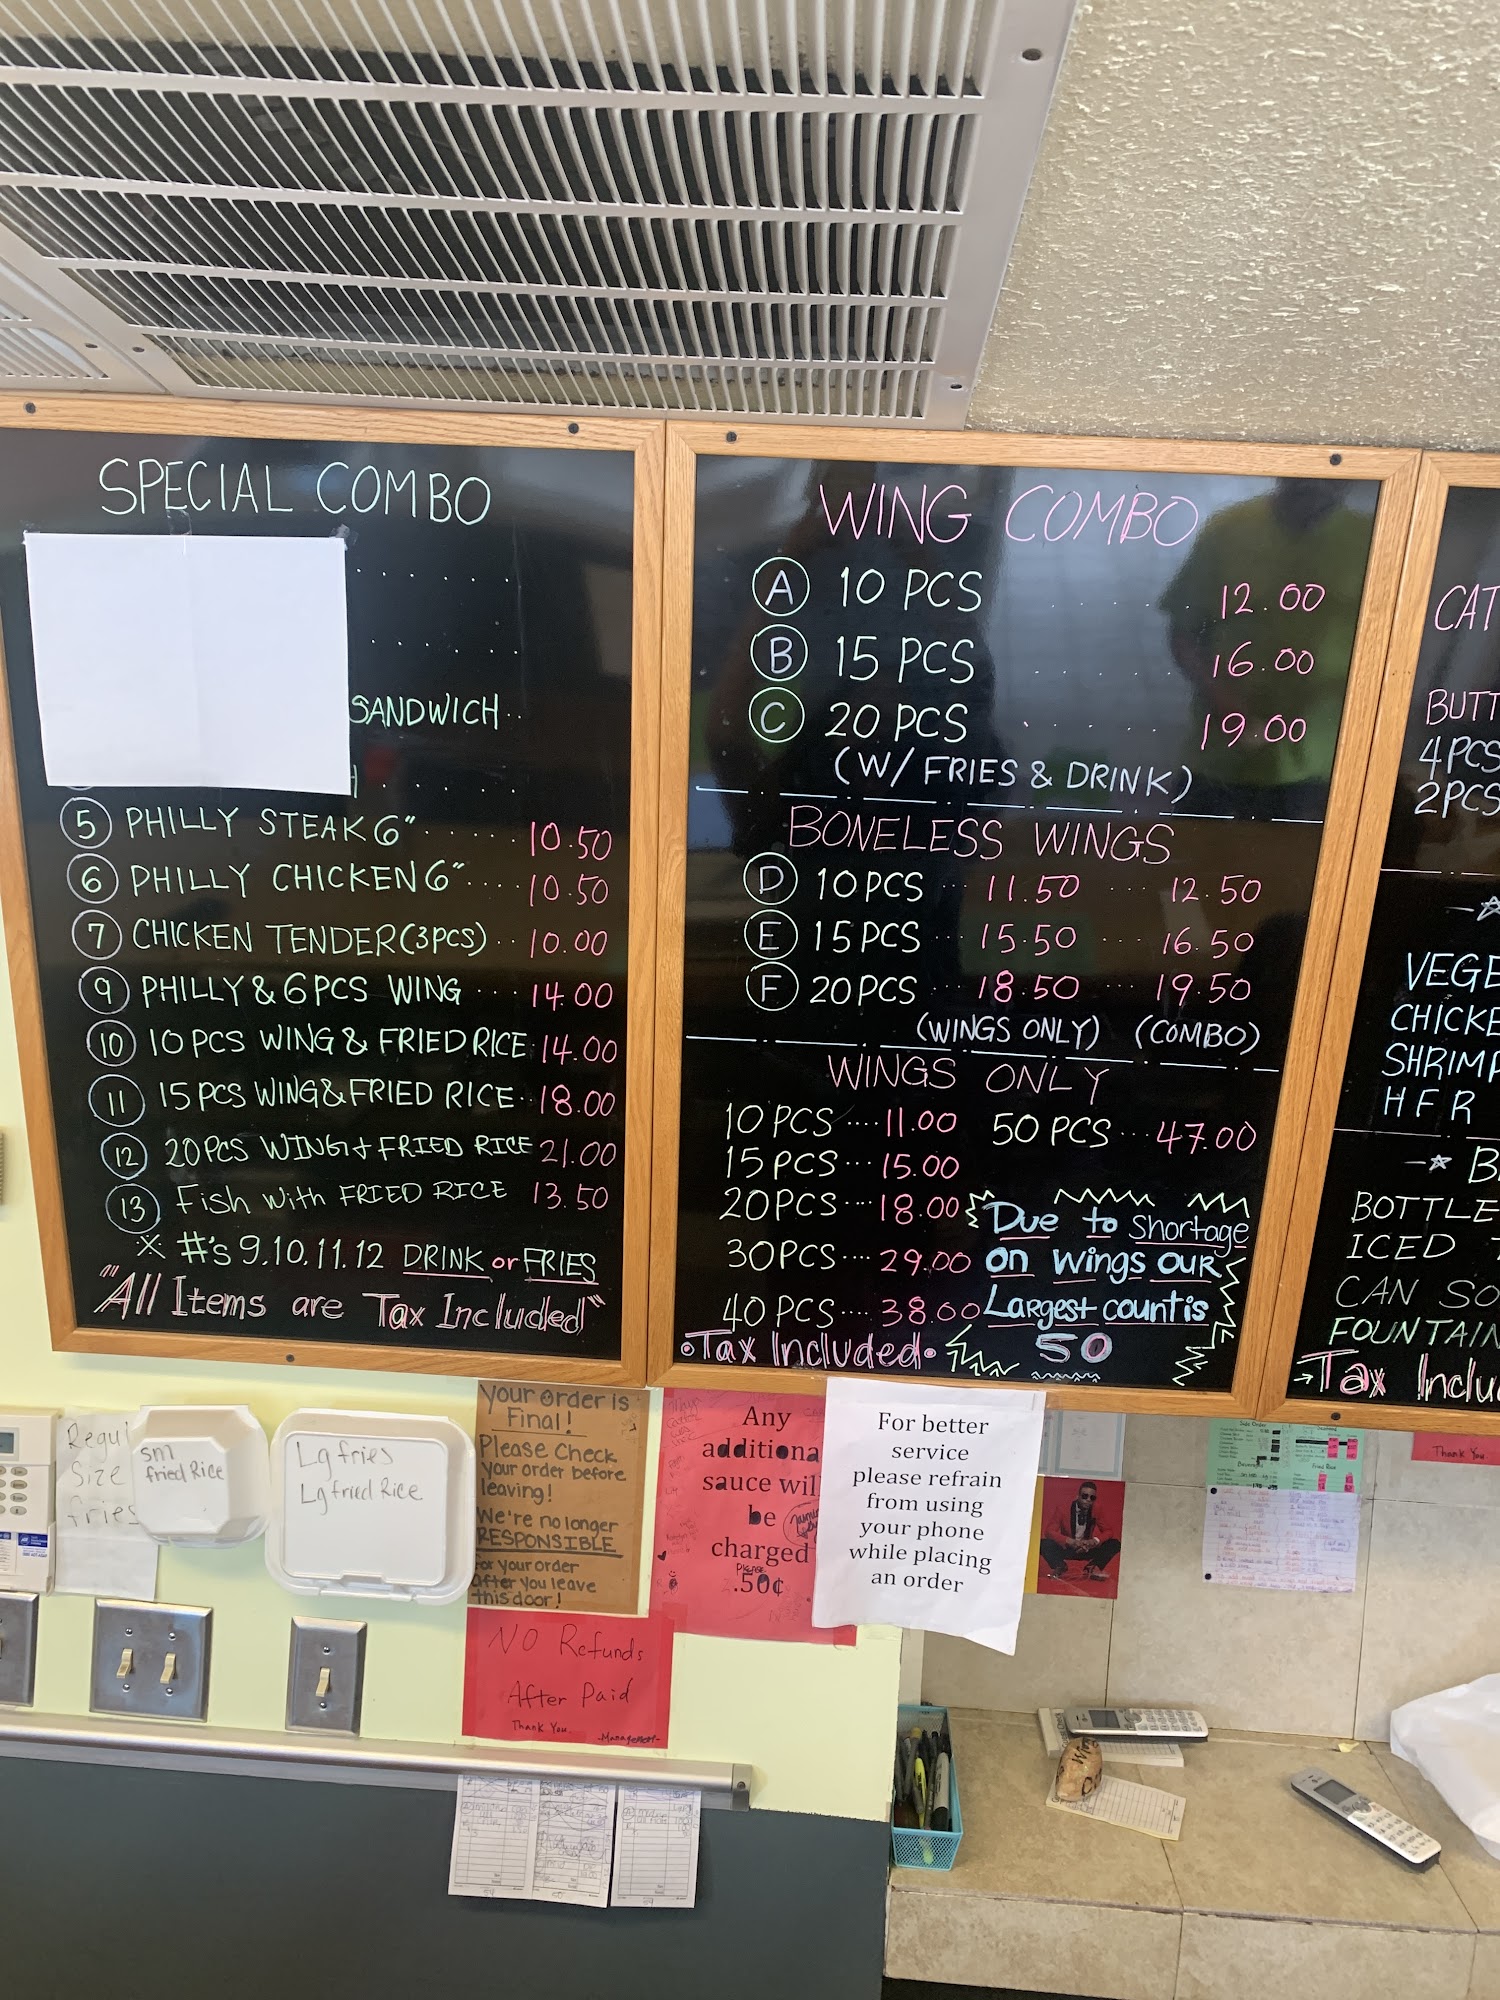 SPECIAL COMBO
SANDWICH
5 PHILLY STEAK 6" 10.50
6 PHILLY CHICKEN 6" 10.50
7 CHICKEN TENDER (3PCS) 10.00
9 PHILLY & 6 PCS WING 14.00
10 10 PCS WING & FRIED RICE 14.00
11 15 PCS WING & FRIED RICE 18.00
12 20 PCS WING + FRIED RICE 21.00
13 Fish with FRIED RICE 13.50
※ #'s 9.10.11.12 DRINK or FRIES
"All Items are Tax Included"
WING COMBO
A 10 PCS 12.00
B 15 PCS 16.00
C 20 PCS 19.00
(W/ FRIES & DRINK)
BONELESS WINGS
D 10 PCS 11.50 12.50
E 15 PCS 15.50 16.50
F 20 PCS 18.50 19.50
(WINGS ONLY) (COMBO)
WINGS ONLY
10 PCS 11.00
15 PCS 15.00
20 PCS 18.00
30 PCS 29.00
40 PCS 38.00
50 PCS 47.00
Due to Shortage
on Wings our
Largest count is
50
Tax Included
4 PCS
2 PCS
SHRIMP
HFR
ICED
FOUNTAIN
Tax
sm
fried Rice
Lg fries
Lg fried Rice
Size
fries
Your order is
Final!
Please Check
your order before
leaving!
We're no longer
RESPONSIBLE
for your order
after you leave
this door!
Any
additional
sauce will
be
charged
PLEASE
.50¢
For better
service
please refrain
from using
your phone
while placing
an order
NO Refunds
After Paid
Thank You. -Management-
Thank You